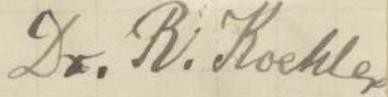 Dr. R. Koehler